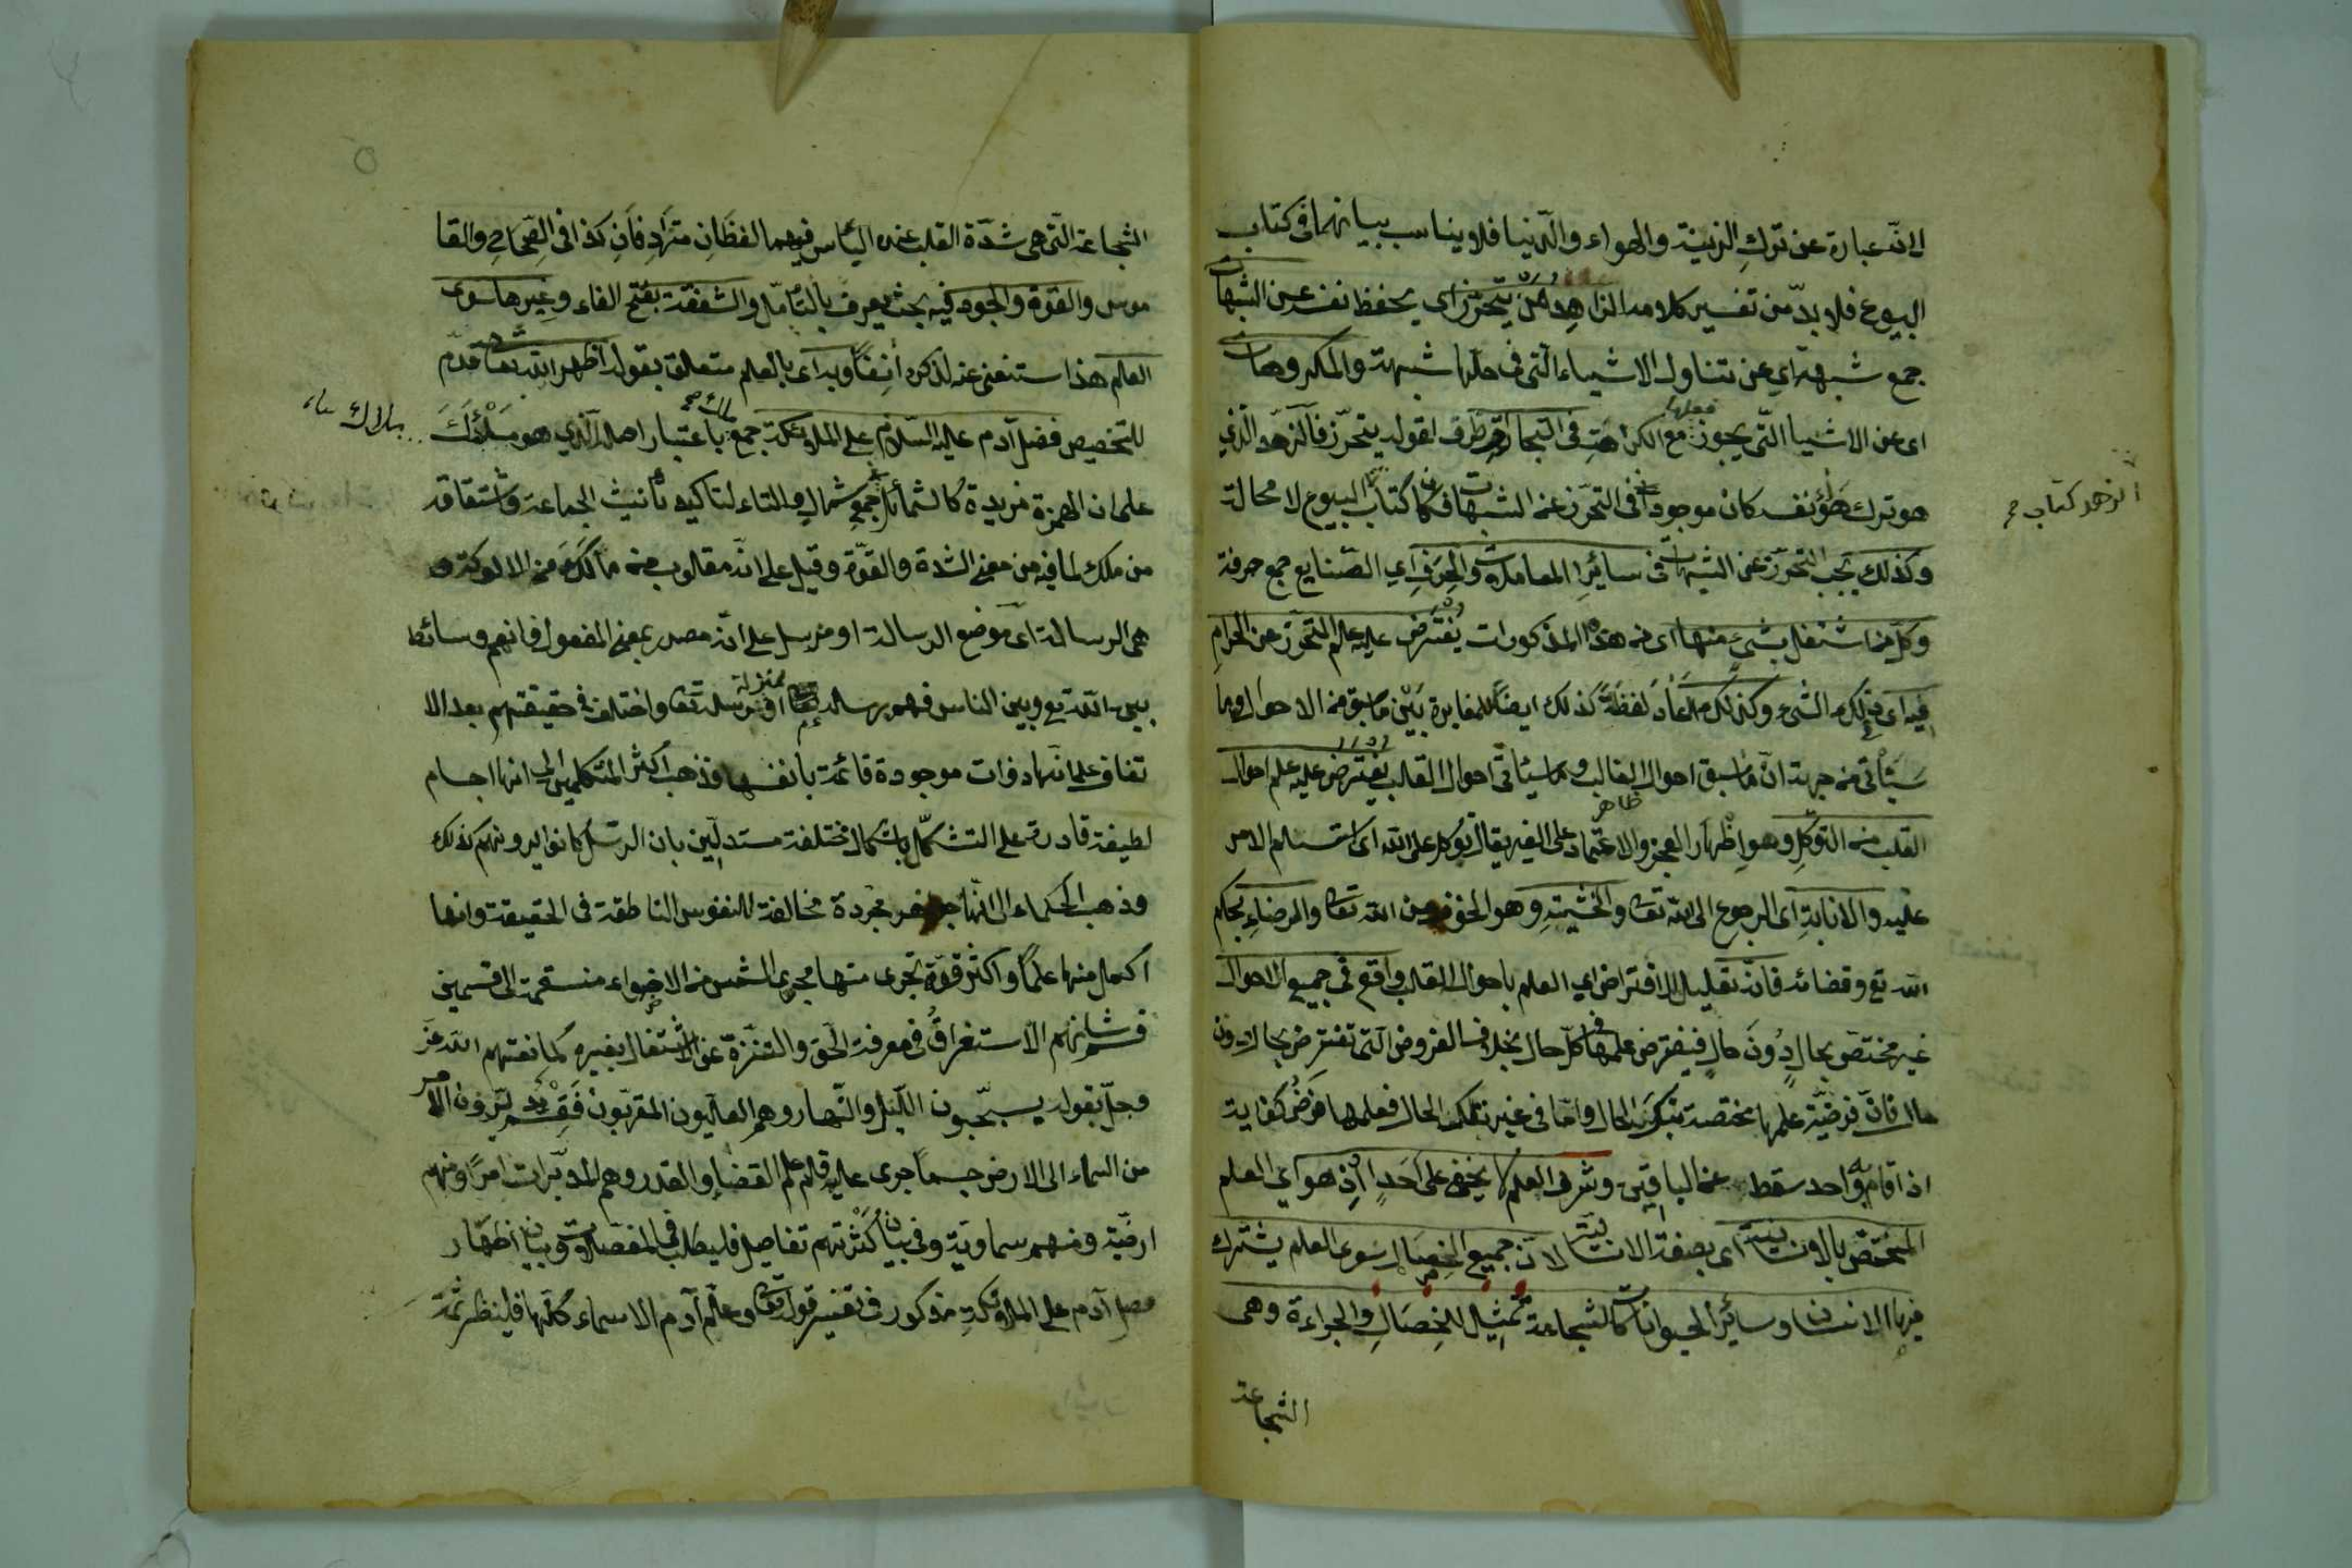 لانه عبارة عن ترك الزينة والهواء والدنيا فلا يناسب بيانهما فى كتاب
البيوع فلا بدّ من تفسير كلامه الزاهد من يتحرز اى يحفظ نفسه عن الشبهات
جمع شبهة اي عن تناول الاشياء الّتى فى حلّها شبهة والمكروهات
اى عن الاشيا الّتى يجوز فعلها مع الكراهة فى التجارة ظرف لقوله يتحرّز فالزهد الّذي
هو ترك نفسه كان موجودا فى التحرّز عن الشبهات فكان كتاب البيوع لا محالة
الزهد كتاب
وكذلك يجب التحرّز عن الشبهات فى سائر المعاملات والحرف اي الصّنايع جمع حرفة
وكلّ من اشتغل بشئ منها اى من هذه المذكورات يفترض عليه علم التحرّز عن الحرام
فيه اى فى ذلك الشئ وكذلك اعاد لفظة كذلك ايضاً للمغايرة بين ما سبق من الاحوال وما
سيأتى من جهة انّ ما سبق احوال القالب وما سيأتى احوال القلب يفترض عليه علم احوال
القلب من التوكّل وهو اظهار العجز والاعتماد على الغير يقال توكل على الله اى استسلم الامر
عليه والانابة اى الرجوع الى الله تعا والخشية وهو الخوف من الله تعا والرضاء بحكم
الله تع وقضائه فانّه تعليل الافتراض اي العلم باحوال القلب واقع فى جميع الاحوال
غير مختصّ بحال دون حال فيفترض علمها فى كلّ حال بخلاف الفروض الّتى تفترض بحال دون
حال فانّ فرضيّة علمها مختصة بتلك الحال وامّا فى غير تلك الحال فعلمها فرض كفاية
اذا قام به واحد سقط عن الباقين وشرف العلم لا يخفى على احد اذ هو اي العلم
المختصّ بالانسانيّة اى بصفة الانسانيّة لانّ جميع الخصال سوى العلم يشترك
فيها الانسان وسائر الحيوانات كالشجاعة تمثيل للخصال والجراءة وهى
الشجاعة
الشجاعة الّتى هى شدّة القلب عند البأس فهما لفظان مترادفان كذا فى الصّحاح والقا
موس والقوّة والجود فيه بحث يعرف بالتأمّل والشفقة بفتح الفاء وغيرها سوى
العلم هذا مستغنى عنه لذكره آنفاً وبه اى بالعلم متعلق بقوله اظهر الله تعا قدّم
للتخصيص فضل آدم عليه السّلام على الملائكة جمع ملأك باعتبار اصله الّذي هو مَلْأَكَ
على ان الهمزة مزيدة كالشمائل جمع شمال والتاء لتاكيد تأنيث الجماعة واشتقاقه
من ملك لما فيه من معنى الشدة والقوّة وقيل على انّه مقلوب من مألك من الالوكة و
هى الرسالة اى موضع الرسالة او مرسل على انّه مصدر بمعنى المفعول فانهم وسائط
بين الله تع وبين الناس فهو رسالة او بمنزلة رسله تعا واختلف فى حقيقتهم بعد الا
تفاق على انّها ذوات موجودة قائمة بانفسها فذهب اكثر المتكلمين الى انها اجسام
لطيفة قادرة على التشكّل باشكال مختلفة مستدلّين بان الرّسل كانوا يرونهم كذلك
وذهب الحكماء الى انّها جواهر مجرّدة مخالفة للنفوس الناطقة فى الحقيقة وانها
اكمل منها علماً واكثر قوّة تجرى منها مجرى الشمس من الاضواء منقسمة الى قسمين
قسم شانهم الاستغراق فى معرفة الحق والتنزّه عن الاشتغال بغيره كما نعتهم الله عزّ
وجلّ بقوله يسبّحون اللّيل والنّهار وهم العالّيون المقرّبون وقسم يدبّرون الامر
من السماء الى الارض حسبما جرى عليه قلم القضاء والقدر وهم المدبّرات امرًا ومنهم
ارضيّة ومنهم سماوية وفى بيان كثرتهم تفاصيل فليطلب فى المفصلات وبيان اظهار
فضل آدم على الملائكة مذكور فى تفسير قوله تعا وعلّم آدم الاسماء كلّها فلينظر ثمّة